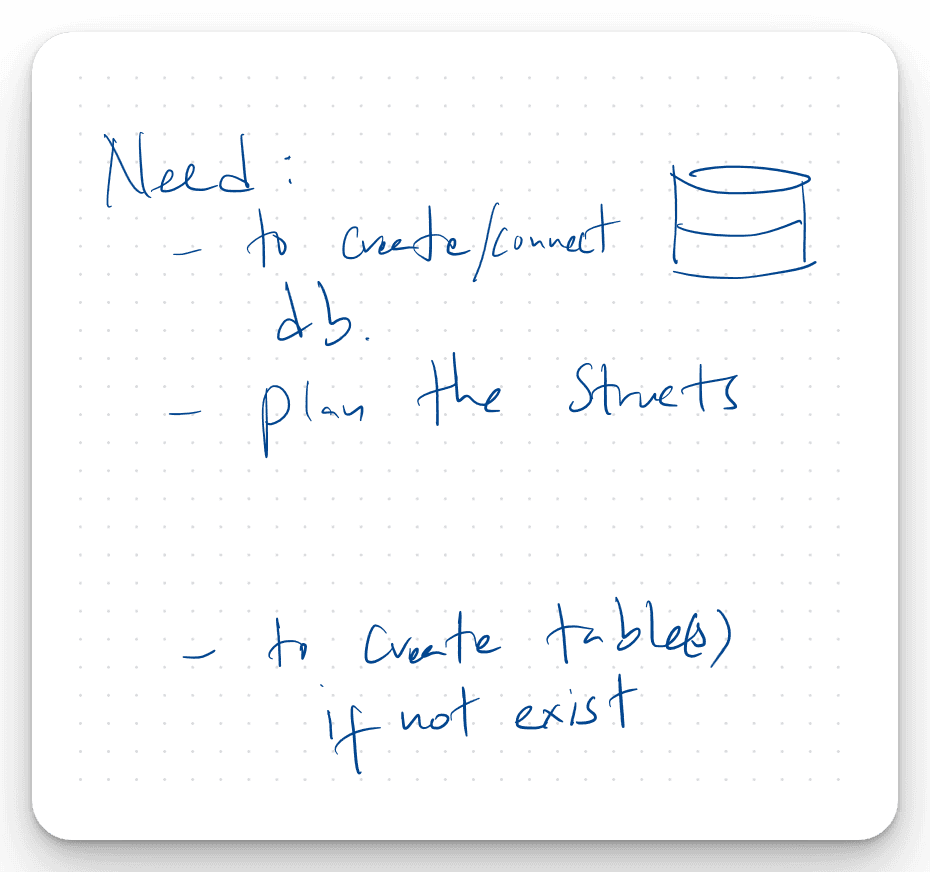 Need:
- to create/connect
db.
- plan the Structs
- to create table(s)
if not exist